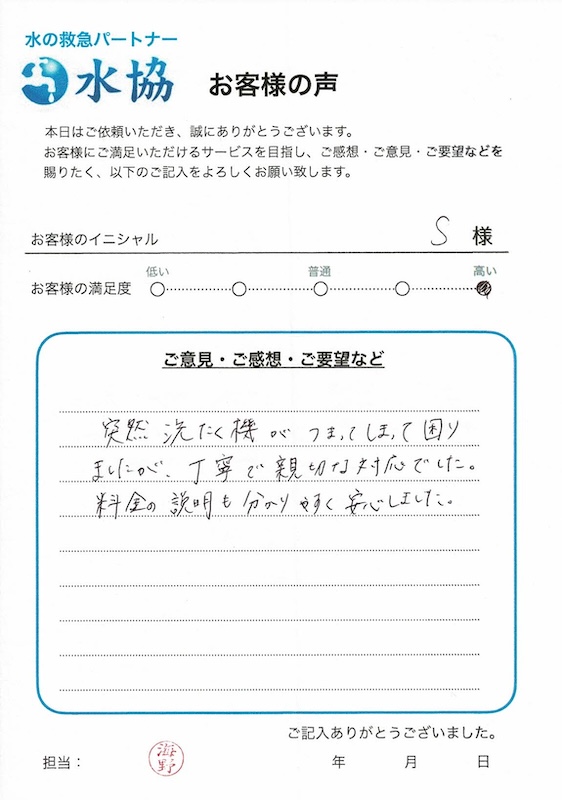 水の救急パートナー
水協 お客様の声
本日はご依頼いただき、誠にありがとうございます。
お客様にご満足いただけるサービスを目指し、ご感想・ご意見・ご要望などを
賜りたく、以下のご記入をよろしくお願い致します。
お客様のイニシャル S 様
低い 普通 高い
お客様の満足度
ご意見・ご感想・ご要望など
突然 洗たく機が つまってしまって困り
ましたが、丁寧で親切な対応でした。
料金の説明も分かりやすく安心しました。
ご記入ありがとうございました。
担当: 海野 年 月 日